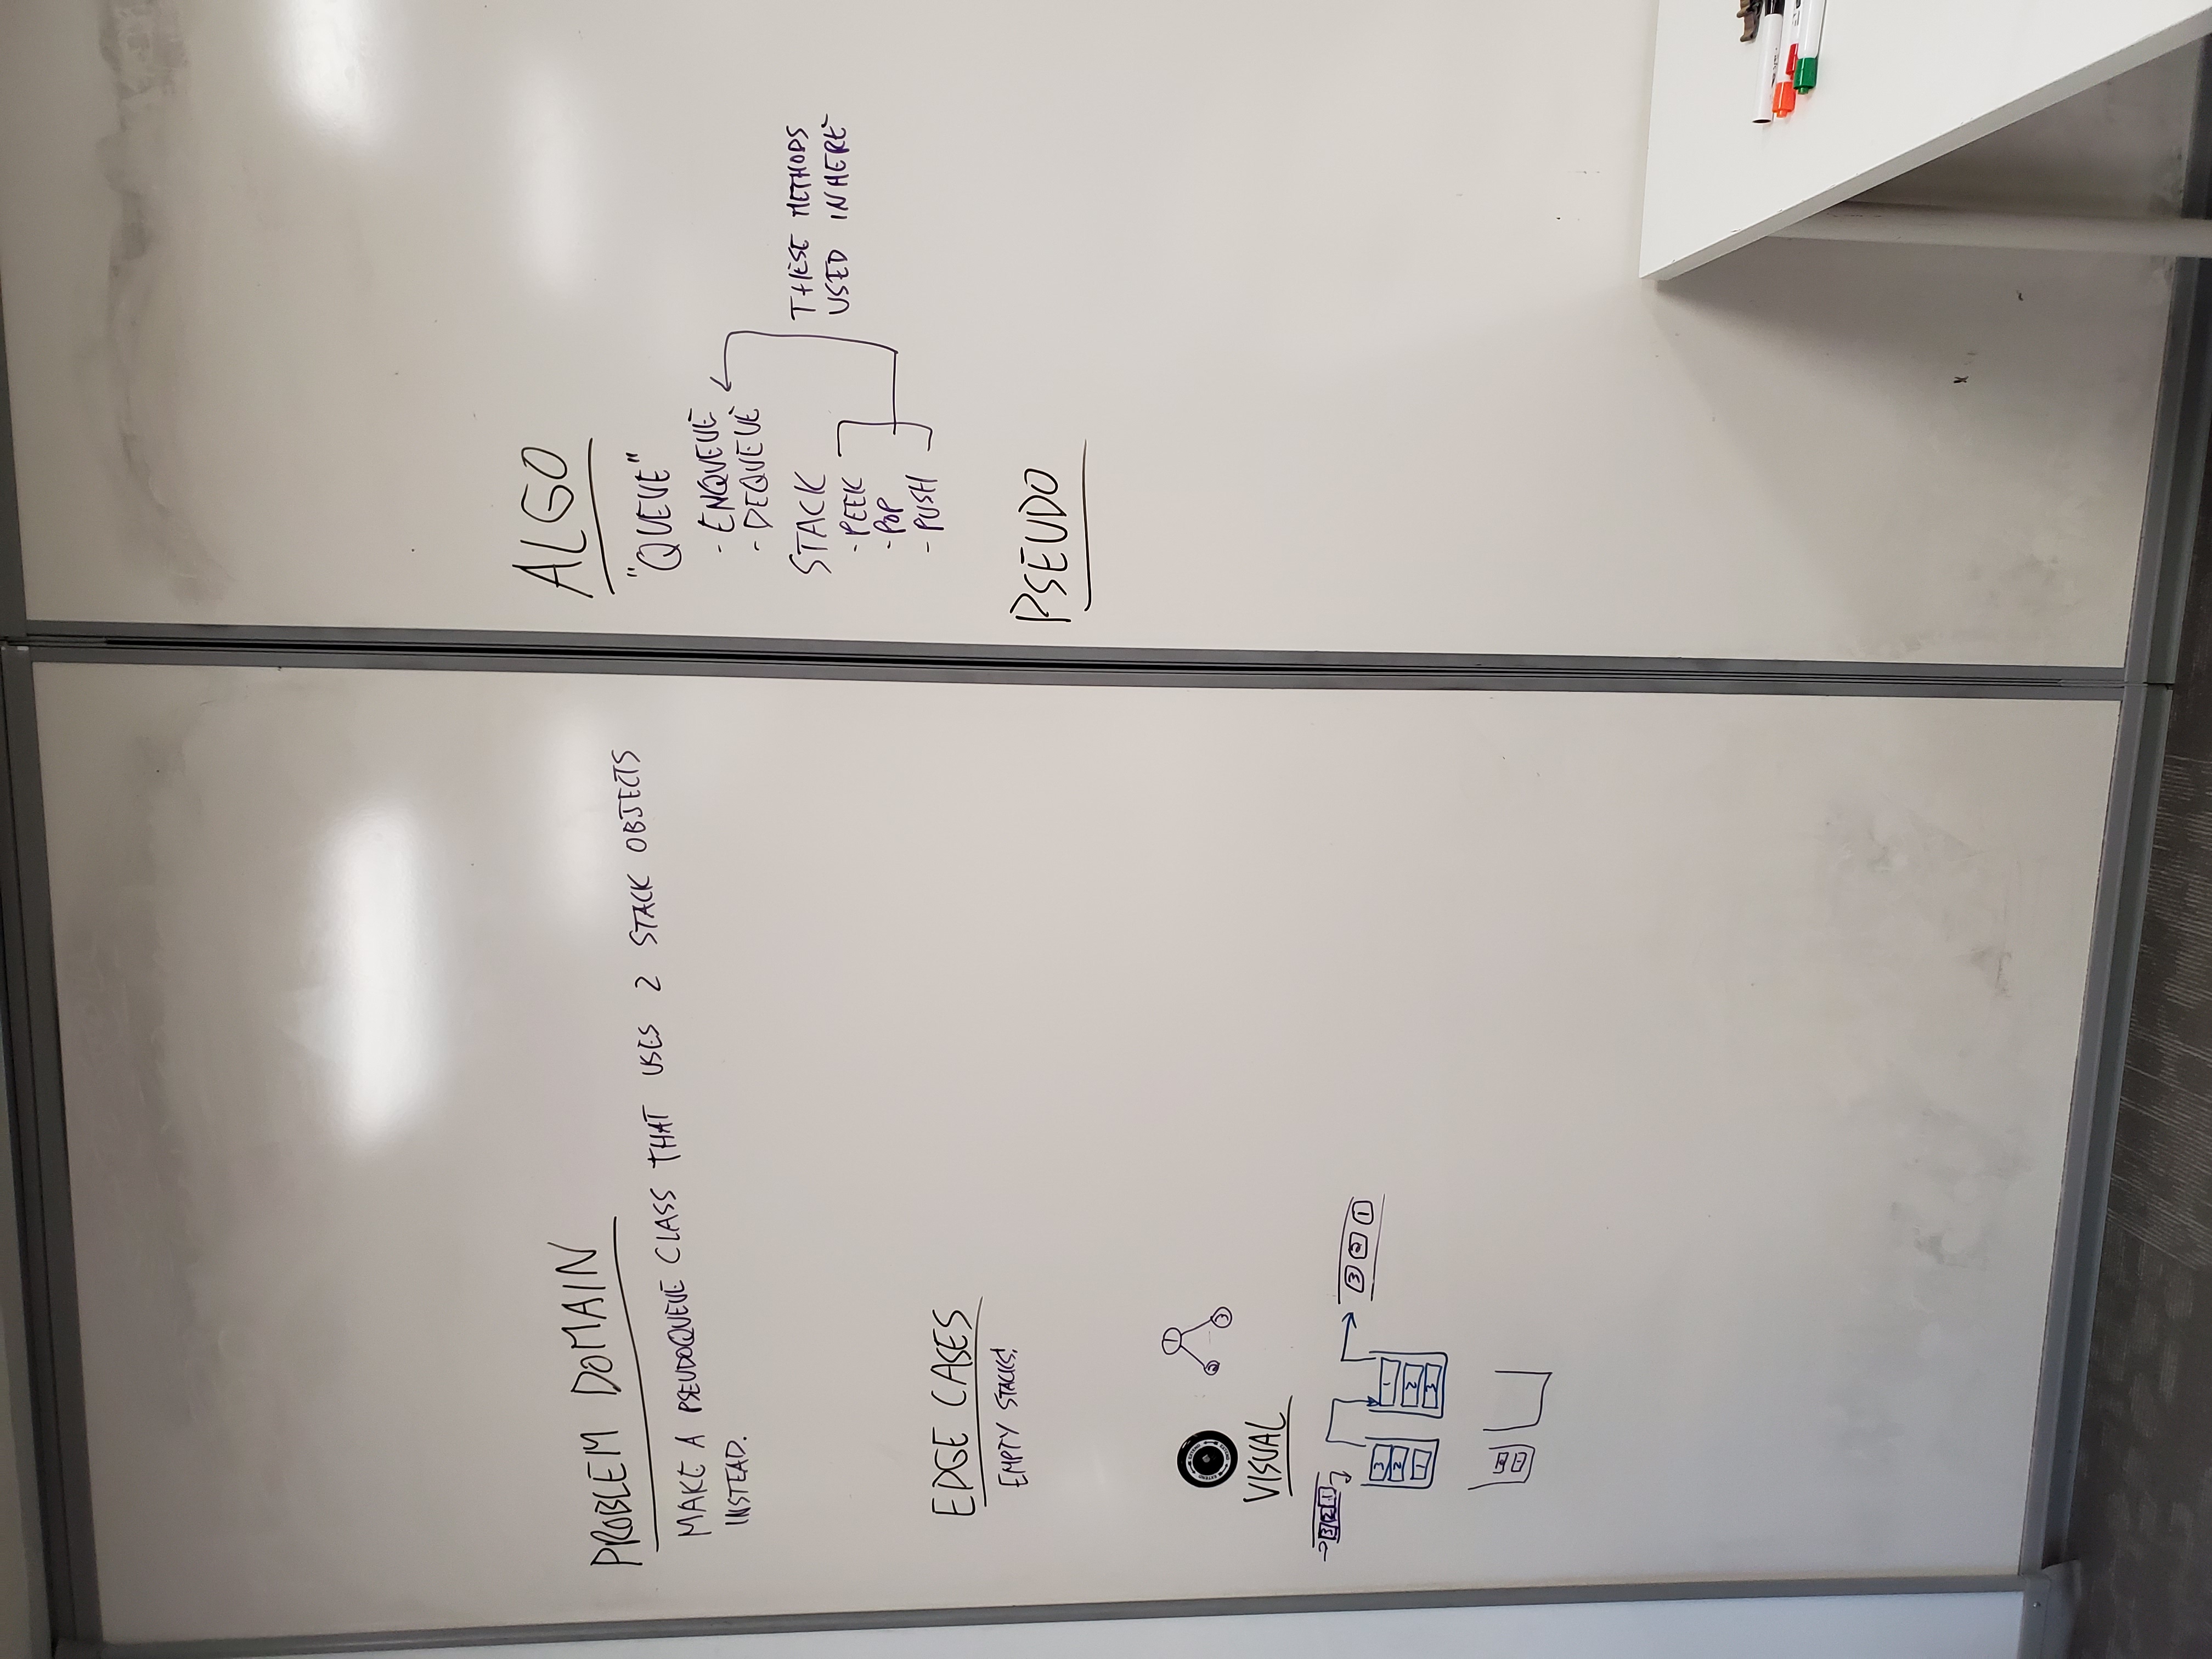 PROBLEM DOMAIN
MAKE A PSEUDOQUEUE CLASS THAT USES 2 STACK OBJECTS
INSTEAD.
EDGE CASES
EMPTY STACKS!
1
2 3
VISUAL
3 2 1
3 2 1
3
2
1
1
2
3
ALGO
"QUEUE"
- ENQUEUE
- DEQUEUE
STACK
- PEEK
- POP
- PUSH
THESE METHODS
USED IN HERE
PSEUDO